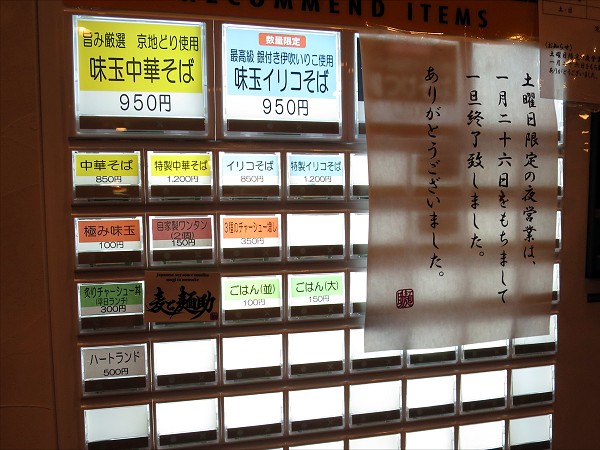 RECOMMEND ITEMS
旨み厳選 京地どり使用
味玉中華そば
950円
数量限定
最高級 銀付き伊吹いりこ使用
味玉イリコそば
950円
中華そば
850円
特製中華そば
1,200円
イリコそば
850円
特製イリコそば
1,200円
極み味玉
100円
自家製ワンタン
(2個)
150円
3種のチャーシュー増し
350円
炙りチャーシュー丼
(平日ランチ)
300円
麦と麺助
ごはん(並)
100円
ごはん(大)
150円
ハートランド
500円
土曜日限定の夜営業は、
一月二十六日をもちまして
一旦終了致しました。
ありがとうございました。